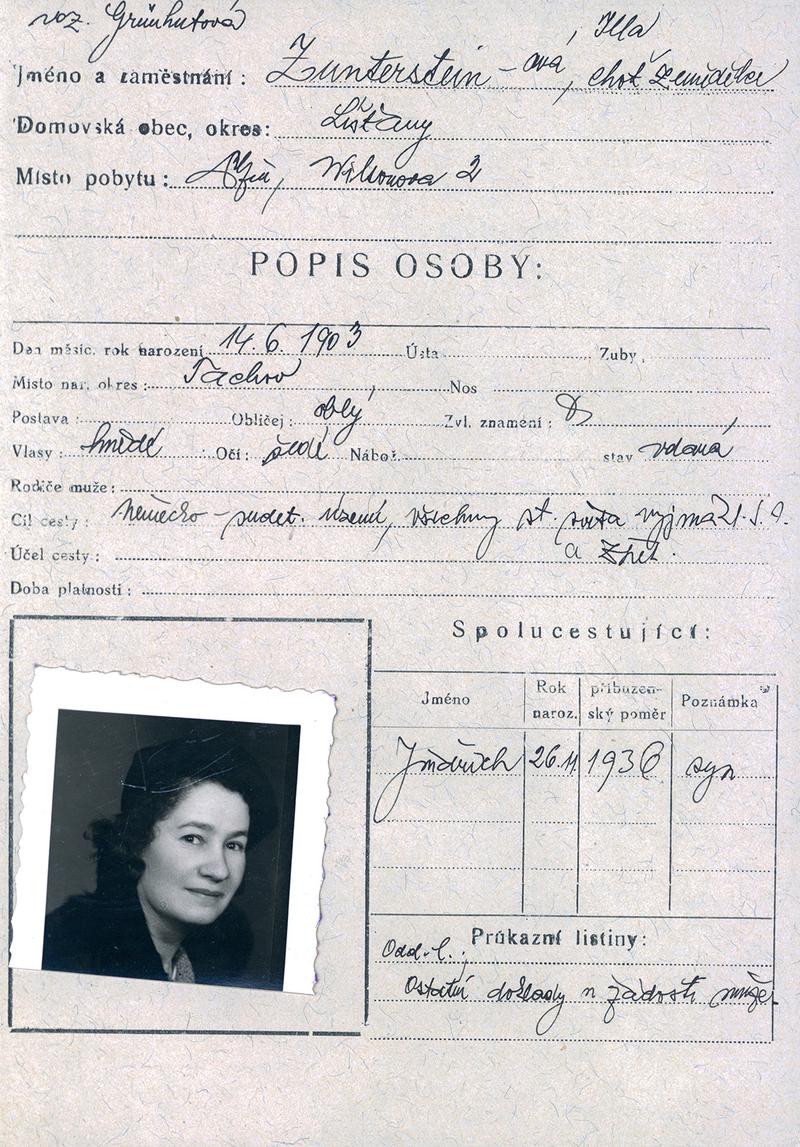 roz. Grünhutová
Illa
Jméno a zaměstnání: Zunterstein-ová, choť zemědělce
Domovská obec, okres: Líšťany
Místo pobytu: Plzeň, Wilsonova 2
POPIS OSOBY:
Den měsíc, rok narození 14. 6 1903 Ústa Zuby
Místo nar. okres: Tachov Nos
Postava: Obličej: oblý Zvl. znamení:
Vlasy: hnědé Oči: šedé Nábož. stav vdaná
Rodiče muže:
Cíl cesty: Německo - sudet. území, všechny st. světa vyjma
a
Účel cesty:
Doba platnosti:
Spolucestující:
Jméno Rok naroz. příbuzenský poměr Poznámka
Jindřich 26.11 1936 syn
Průkazní listiny:
Odd. l.:
Ostatní doklady u žádosti muže